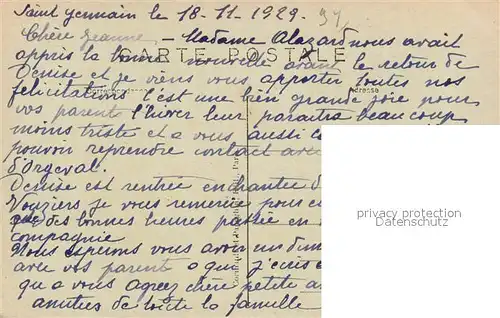 Saint Germain le 18-11-1929.
Chère Jeanne - Madame Alazard nous avait
CARTE POSTALE
appris la bonne nouvelle avant le retour de
Denise et je viens vous apporter toutes nos
félicitations c'est une bien grande joie pour
Adresse
vos parents l'hiver leur paraitra beaucoup
moins triste et a vous aussi
pouvoir reprendre contact avec
d'Orgeval.
Denise est rentrée enchantée
Vouziers je vous remercie pour
que des bonnes heures passée en
compagnie
Nous espérons vous avoir un
avec vos parent
que vous agreez chère petite
amities de toute la famille
privacy protection
Datenschutz